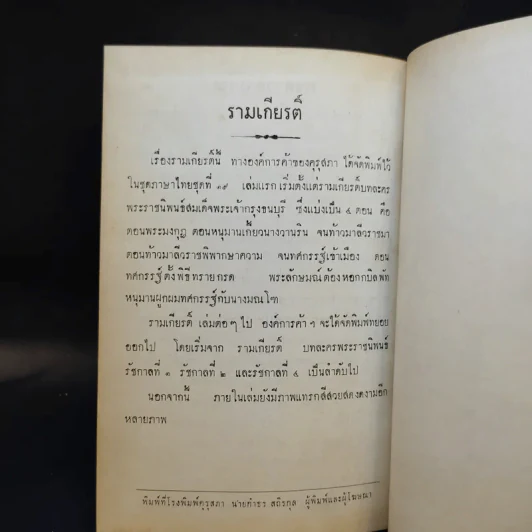 รามเกียรติ์
เรื่องรามเกียรตินี้ ทางองค์การค้าของคุรุสภา ได้จัดพิมพ์ไว้
ในชุดภาษาไทยชุดที่ ๑๙ เล่มแรก เริ่มตั้งแต่รามเกียรติ์บทละคร
พระราชนิพนธ์สมเด็จพระเจ้ากรุงธนบุรี ซึ่งแบ่งเป็น ๔ ตอน คือ
ตอนพระมงกุฎ ตอนหนุมานเกี้ยวนางวานริน จนท้าวมาลีวราชมา
ตอนท้าวมาลีวราชพิพากษาความ จนทศกรรฐ์เข้าเมือง ตอน
ทศกรรฐ์ตั้งพิธีทรายกรด พระลักษมณ์ต้องหอกกบิลพัท
หนุมานผูกผมทศกรรฐ์กับนางมณโฑ
รามเกียรติ์ เล่มต่อๆ ไป องค์การค้า ฯ จะได้จัดพิมพ์ทยอย
ออกไป โดยเริ่มจาก รามเกียรติ์ บทละครพระราชนิพนธ์
รัชกาลที่ ๑ รัชกาลที่ ๒ และรัชกาลที่ ๔ เป็นลำดับไป
นอกจากนี้ ภายในเล่มยังมีภาพแทรกสีสวยสดงดงามอีก
หลายภาพ
พิมพ์ที่โรงพิมพ์คุรุสภา นายกำธร สถิรกุล ผู้พิมพ์และผู้โฆษณา